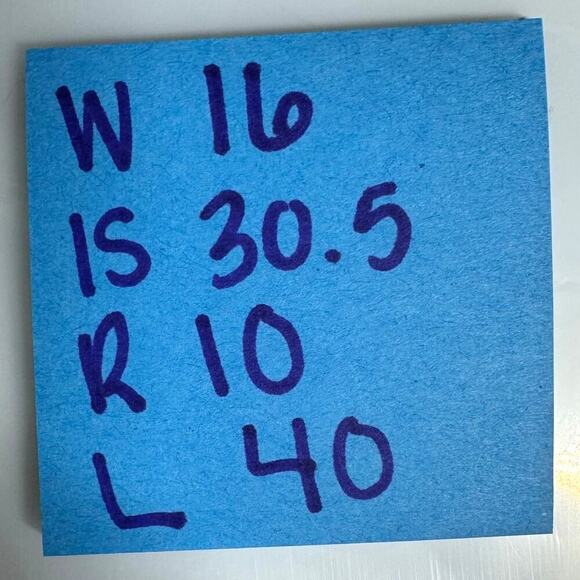 W 16
IS 30.5
R 10
L 40